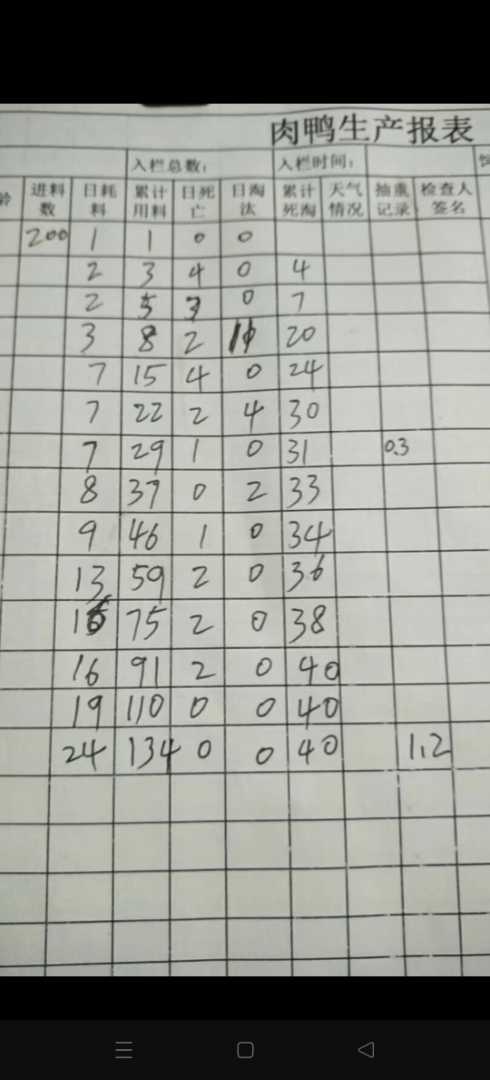 肉鸭生产报表
入栏总数： 入栏时间：
龄 进料数 日耗料 累计用料 日死亡 日淘汰 累计死淘 天气情况 抽重记录 检查人签名
200 1 1 0 0
2 3 4 0 4
2 5 3 0 7
3 8 2 11 20
7 15 4 0 24
7 22 2 4 30
7 29 1 0 31 0.3
8 37 0 2 33
9 46 1 0 34
13 59 2 0 36
16 75 2 0 38
16 91 2 0 40
19 110 0 0 40
24 134 0 0 40 1.2